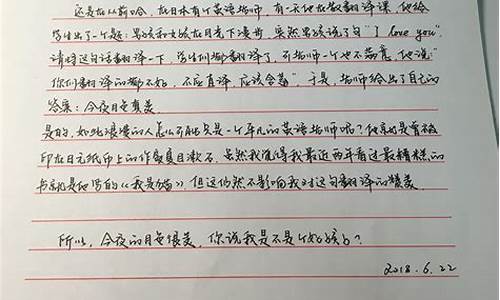 这是在从前哈,在日本有个英语老师,有一天他在教翻译课,他给
学生出了一个题:男孩和女孩在月亮下漫步,突然男孩说了句"I love you",
请将这句话翻译一下,学生们都翻译了,可老师一个也不满意,他说"
你们翻译的都不好,不应直译,应该含蓄",于是,老师给出了自己的
答案:今夜月色真美
是的,如此浪漫的人怎么可能只是一个平凡的英语老师呢?他就是曾被
印在日元纸币上的作家夏目漱石,虽然我觉得我最近两年看过最糟糕的
书就是他写的《我是猫》,但这仍然不影响我对这句翻译的赞美
所以,今夜的月色很美,你说我是不是个好孩子?
2018.6.22